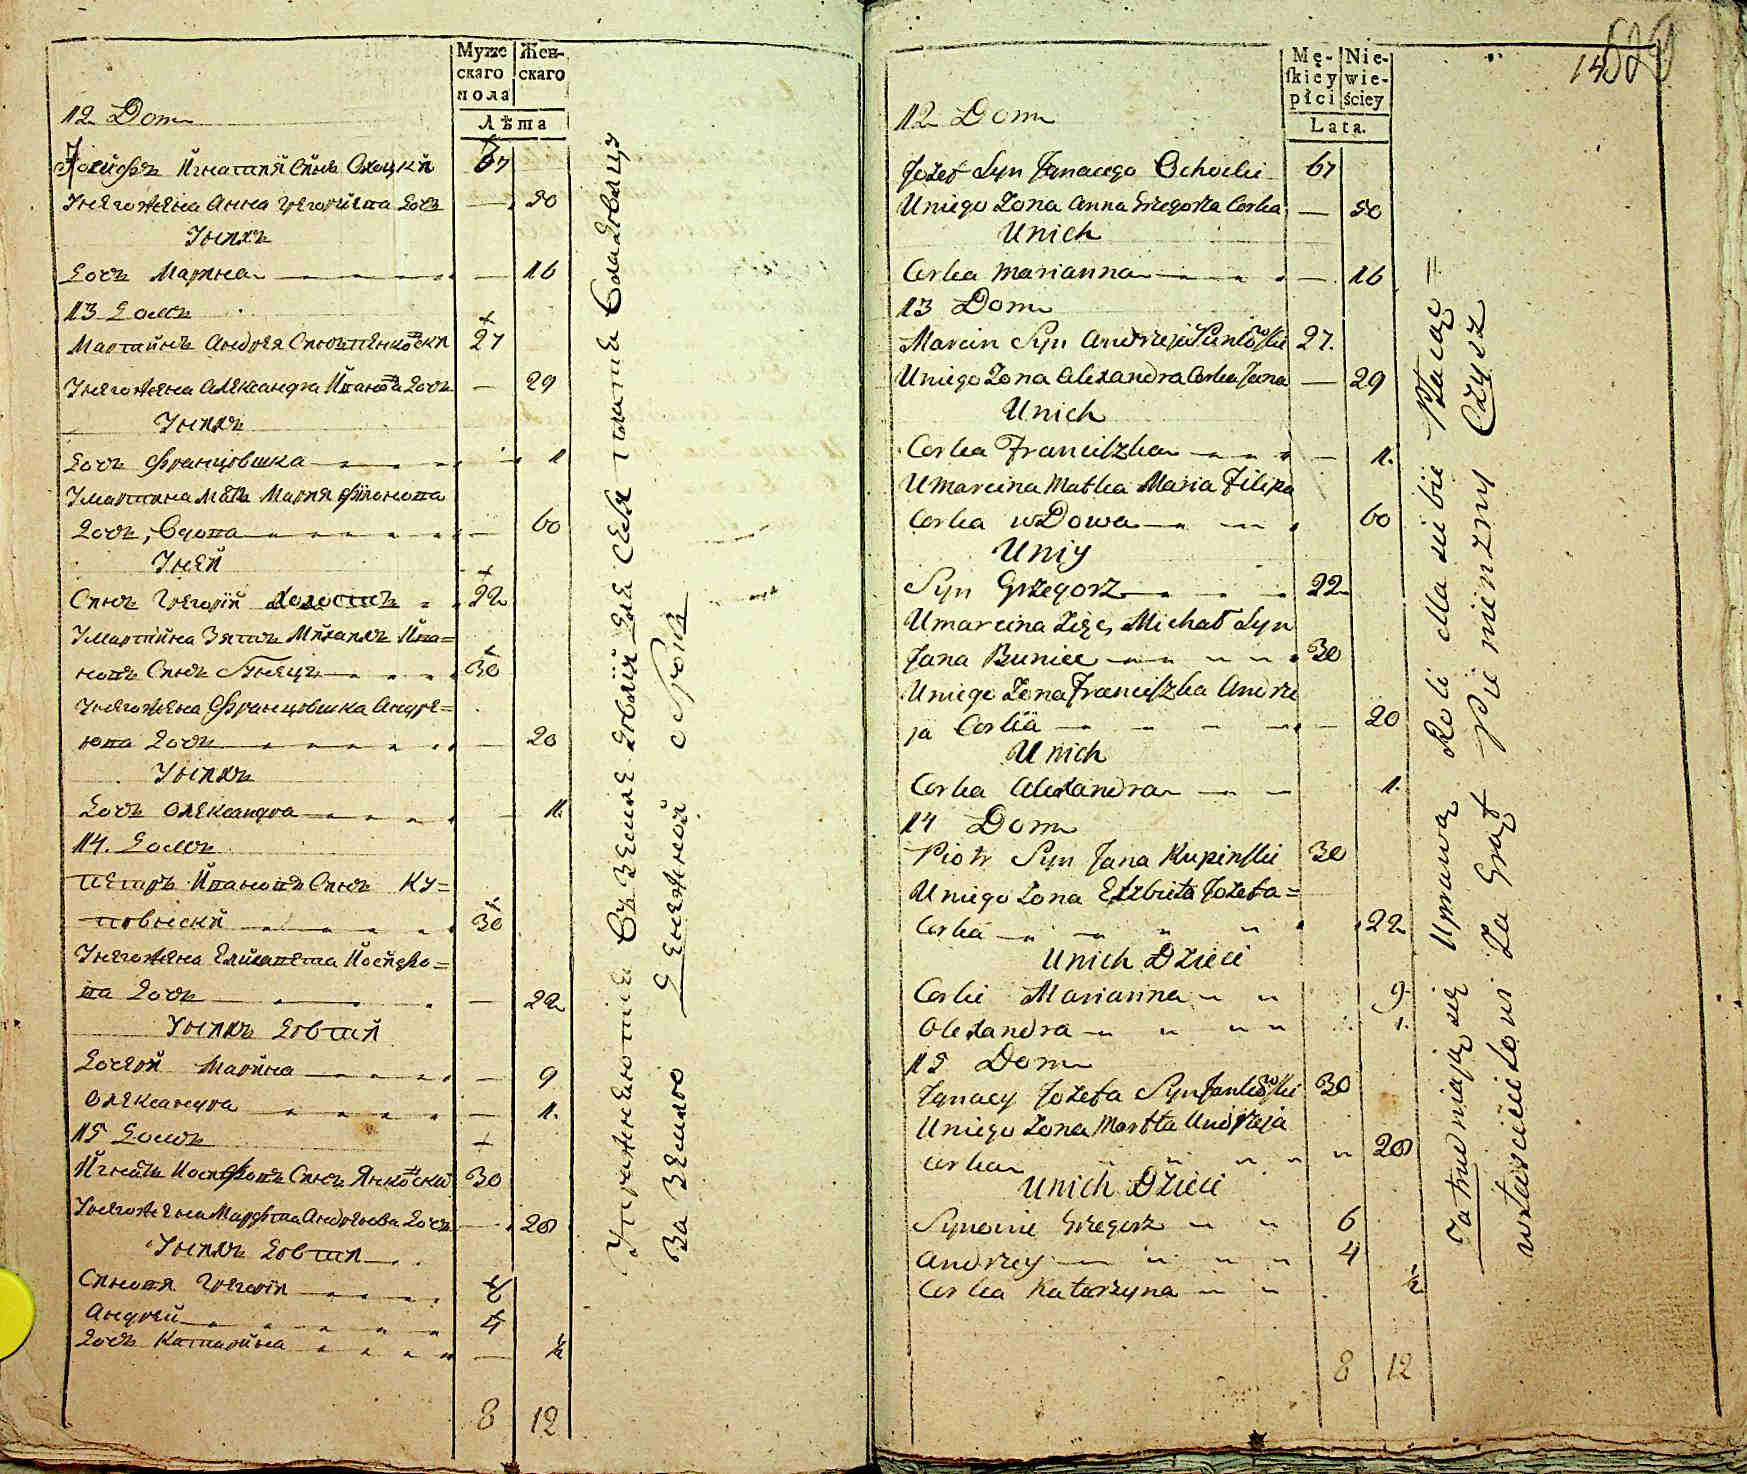 Муже Жен-
скаго скаго
пола
Лѣта
12 Dom
Іосифъ Игнатия Сынъ Охоцкй 67
Унего жена Анна Григорьева Дочь — 50
Унихъ
Дочь Марина — 16
13 Домъ
Мартинъ Андрея Сынъ 27
Унего жена Александра Иванова Дочь — 29
Унихъ
Дочь Францишка 1
Умартина Мать Мария Филипова
Дочь, Вдова 60
Уней
Сынъ Григорий холостъ 22
Умартина Зять Михаилъ Ива=
новъ Сынъ 30
Унего жена Францишка Андре=
ева Дочь — 20
Унихъ
Дочь Олександра — 1.
14. Домъ
Петръ Ивановъ Сынъ Ку=
30
Унего жена Елисавета Иосифо=
ва Дочь — 22
Унихъ Дѣти
Дочери Марина — 9
Олександра — 1.
15 Домъ
Игнатъ Иосифовъ Сынъ Янковский 30
Унего жена Марфта Андреева Дочь 28
Унихъ Дѣти
Сыновя Григорй 6
Андрей 4
Дочь Катарина — ½
8 12
Упражнение въ земле для себя
За землю денежной оброкъ
1450
Mę- Nie-
ſkiey wie-
płci ściey
Lata.
12 Dom
Jozef Syn Jgnacego Ochocki 67
Uniego Zona Anna Grzegorza Corka — 50
Unich
Corka Marianna — 16
13 Dom
Marcin Syn Andrzeja 27.
Uniego Zona Alexandra Corka Jana — 29
Unich
Corka Franciszka — 1.
Umarcina Matka Maria Filipa
Corka wDowa 60
Uniy
Syn Grzegorz 22
Umarcina Zięć, Michał Syn
Jana Buniec 30
Uniego Zona Franciszka Andrze
ja Corka — 20
Unich
Corka Alexandra 1.
14 Dom
Piotr Syn Jana Kupinski 30
Uniego Zona Elzbieta Jozefa=
Corka 22
Unich Dzieci
Corki Marianna 9
Olexandra 1.
15 Dom
Jgnacy Jozefa Syn Jankowski 30
Uniego Zona Martta Andrzeja
Corka 28
Unich Dzieci
Synowie Grzegorz 6
Andrzey 4
Corka Katarzyna ½
8 12
Zatrudniają się Uprawą Roli dla siebie Płacąc =
właścicielowi Za Grunt Pieniężny Czynsz